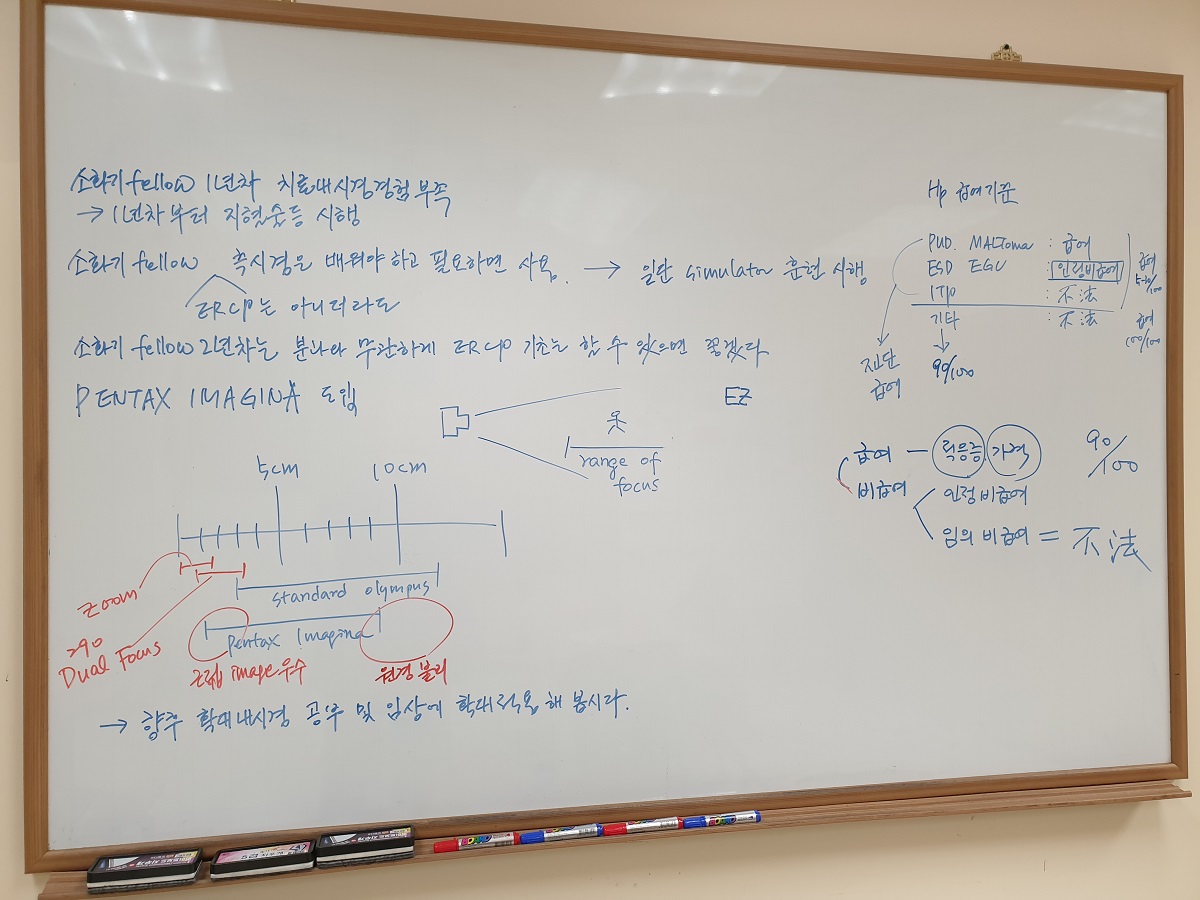 소화기 fellow 1년차 치료내시경경험부족
→ 1년차부터 지혈술등 시행
소화기 fellow 측시경은 배워야하고 필요하면 사용. → 일단 simulator 훈련 시행
ERCP는 아니더라도
소화기 fellow 2년차는 분과와 무관하게 ERCP 기초는 할 수 있으면 좋겠다
PENTAX IMAGINA 도입
EZ
range of
focus
5cm 10cm
standard olympus
Pentax Imagina
Zoom
290
Dual Focus
근접 image 우수
원경 불리
→ 향후 확대내시경 공부 및 임상에 확대적용 해 봅시다.
Hp 급여기준
PUD. MALToma : 급여
ESD EGC : 인정비급여
ITP : 不法
기타 : 不法
급여
급여
100/100
진단
급여
90/100
급여 - 적응증 가격
비급여
인정비급여
임의비급여 = 不法
90/100